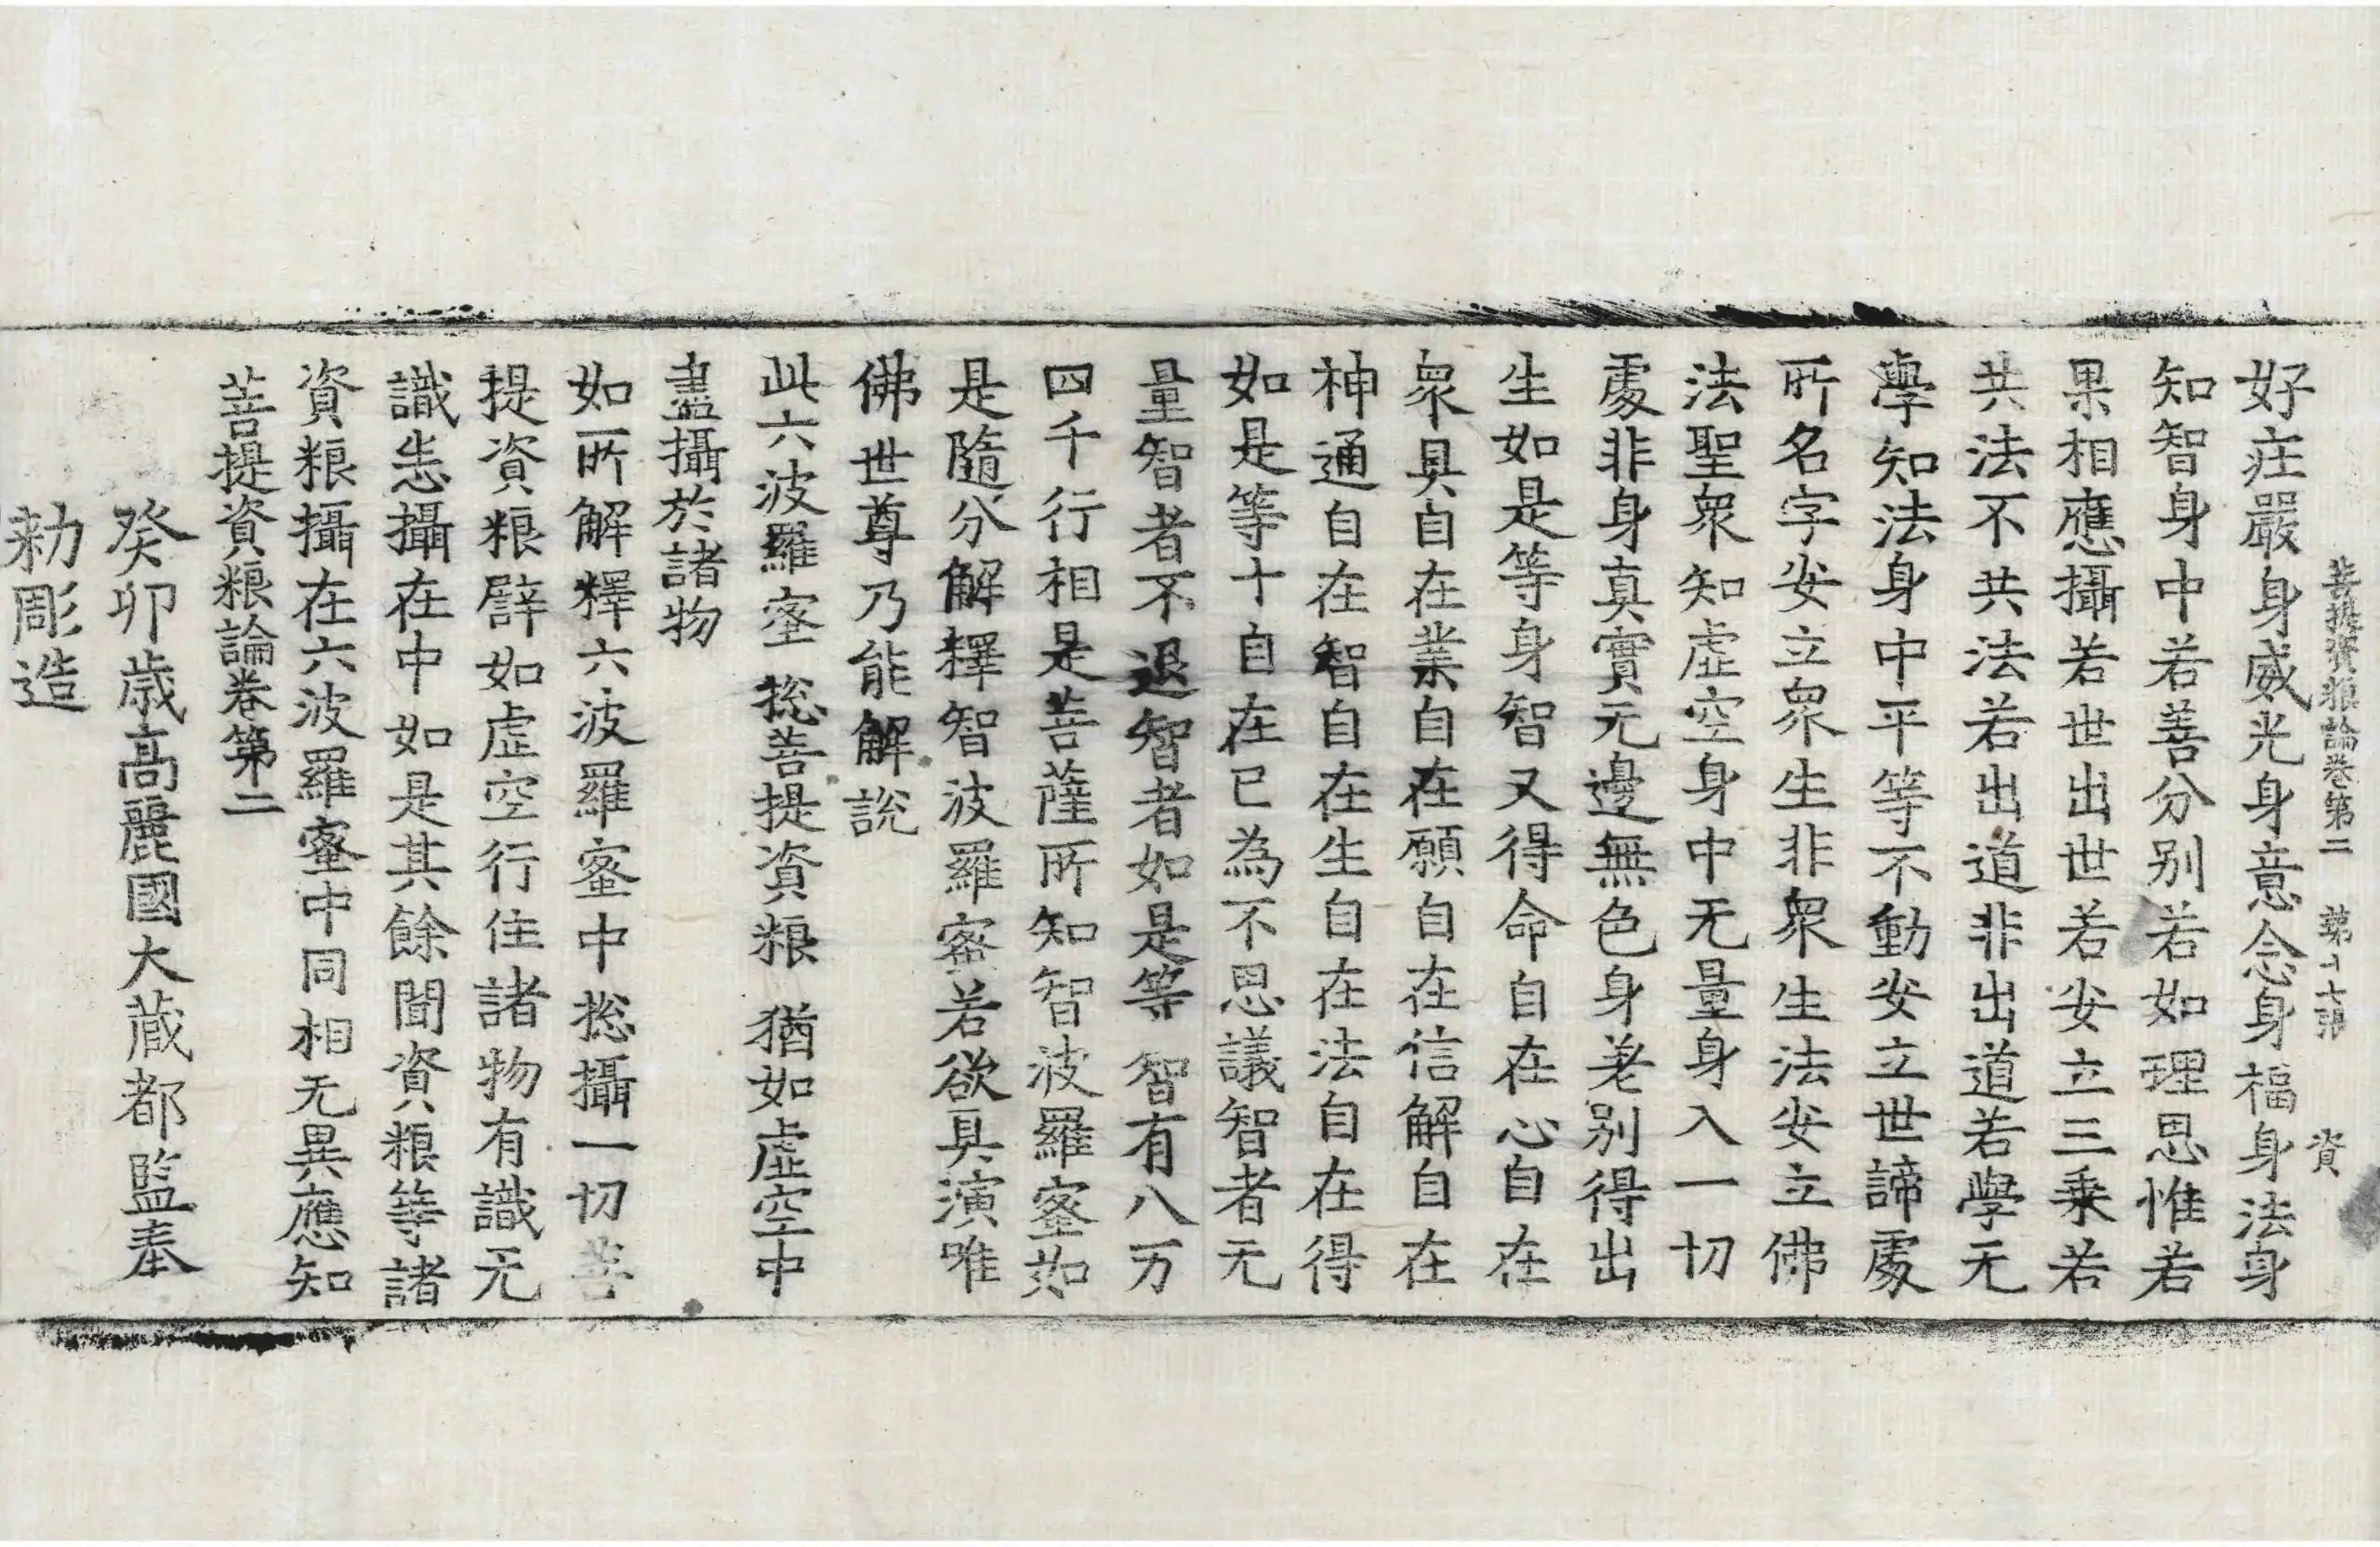 菩提資粮論卷第二　第十七張　資
好庄嚴身威光身意念身福身法身
知智身中若善分別若如理思惟若
果相應攝若世出世若安立三乘若
共法不共法若出道非出道若學无
學知法身中平等不動安立世諦處
所名字安立衆生非衆生法安立佛
法聖衆知虛空身中无量身入一切
處非身真實无邊無色身差別得出
生如是等身智又得命自在心自在
衆具自在業自在願自在信解自在
神通自在智自在生自在法自在得
如是等十自在已為不思議智者无
量智者不退智者如是等智有八万
四千行相是菩薩所知智波羅蜜如
是隨分解釋智波羅蜜若欲具演唯
佛世尊乃能解說
此六波羅蜜　揔菩提資粮　猶如虛空中
盡攝於諸物
如所解釋六波羅蜜中揔攝一切菩
提資粮譬如虛空行住諸物有識无
識悉攝在中如是其餘聞資粮等諸
資粮攝在六波羅蜜中同相无異應知
菩提資粮論卷第二
癸卯歲高麗國大藏都監奉
勑彫造